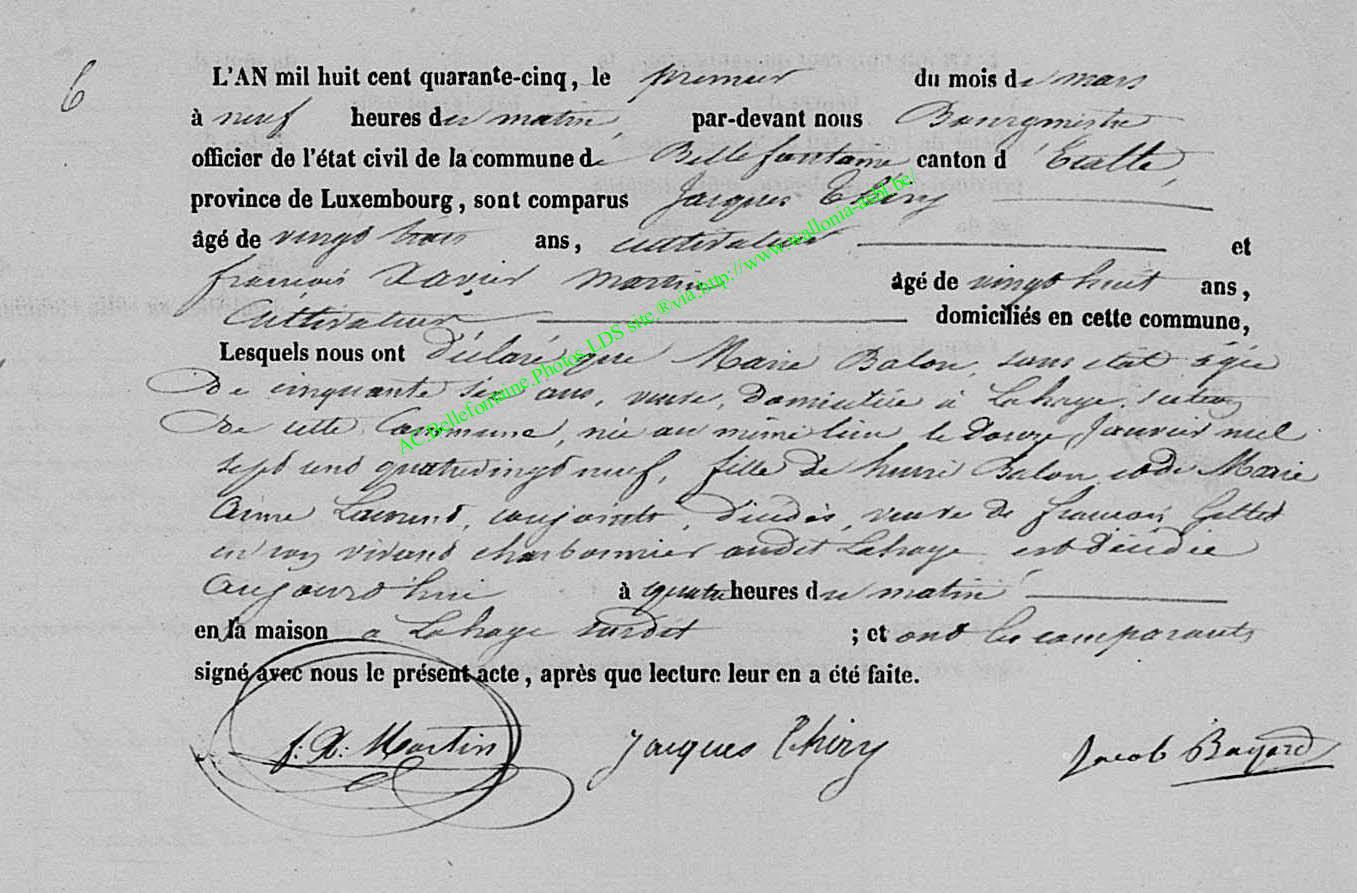 6
L'AN mil huit cent quarante-cinq, le premier du mois de mars
à neuf heures du matin, par-devant nous Bourgmestre
officier de l'état civil de la commune de Bellefontaine canton d'Etalle,
province de Luxembourg, sont comparus Jacques Thiry
âgé de vingt trois ans, cultivateur et
françois Xavier Martin âgé de vingt huit ans,
cultivateur domiciliés en cette commune,
Lesquels nous ont déclaré que Marie Balon, sans état âgée
de cinquante six ans, veuve, domiciliée à Lahage, section
de cette Commune, née au même lieu le douze Janvier mil
sept cent quatrevingt neuf, fille de henri Balon et de Marie
Anne Laurent, conjoints, décédés, veuve de francois
en son vivant charbonnier audit Lahage est décédée
aujourd'hui à quatre heures du matin
en la maison à Lahage susdit ; et ont les comparants
signé avec nous le présent acte, après que lecture leur en a été faite.
f. X. Martin Jacques Thiry Jacob Bayard
AC.Bellefontaine.Photos LDS site ®via http://www.wallonia-asbl.be/